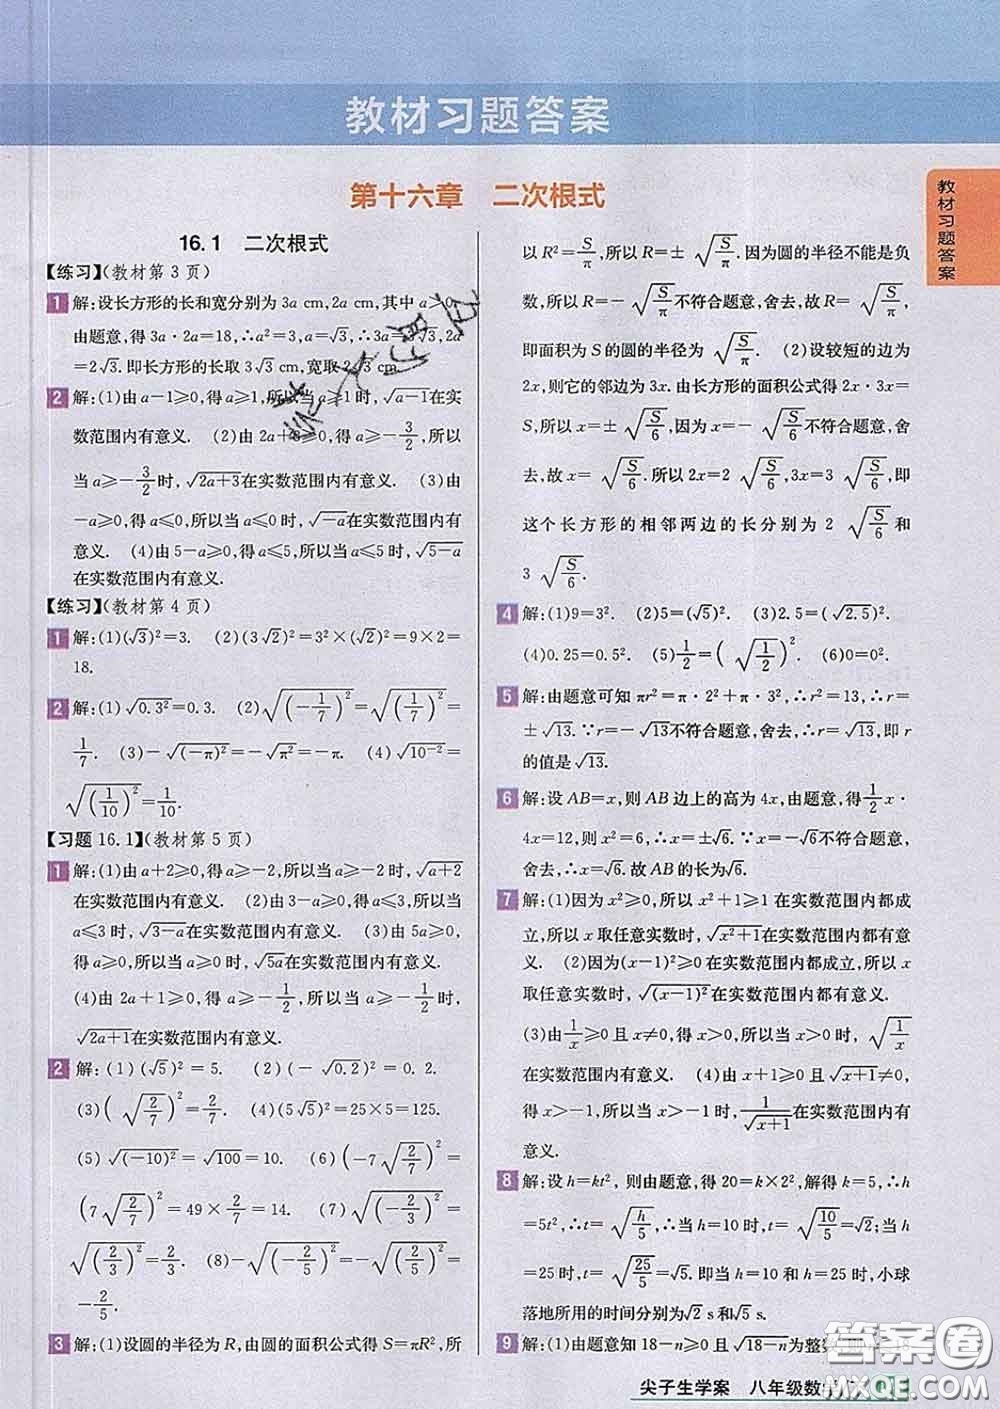 教材习题答案
第十六章　二次根式
教材习题答案
16.1　二次根式
【练习】(教材第 3 页)
1 解:设长方形的长和宽分别为 3a cm,2a cm,其中 a>0.
由题意,得 3a·2a=18,∴a²=3,a=√3,∴3a=3√3,2a
=2√3.即长方形的长取 3√3 cm,宽取 2√3 cm.
2 解:(1)由 a-1≥0,得 a≥1,所以当 a≥1 时,√(a-1)在实
数范围内有意义.　(2)由 2a+3≥0,得 a≥-3/2,所以
当 a≥-3/2时,√(2a+3)在实数范围内有意义.　(3)由
-a≥0,得 a≤0,所以当 a≤0 时,√(-a)在实数范围内有
意义.　(4)由 5-a≥0,得 a≤5,所以当 a≤5 时,√(5-a)
在实数范围内有意义.
【练习】(教材第 4 页)
1 解:(1)(√3)²=3.　(2)(3√2)²=3²×(√2)²=9×2=
18.
2 解:(1)√(0.3²)=0.3.　(2)√((-1/7)²)=√((1/7)²)=
1/7.　(3)-√((-π)²)=-√(π²)=-π.　(4)√(10⁻²)=
√((1/10)²)=1/10.
【习题 16.1】(教材第 5 页)
1 解:(1)由 a+2≥0,得 a≥-2,所以当 a≥-2 时,√(a+2)
在实数范围内有意义.　(2)由 3-a≥0,得 a≤3,所以当
a≤3 时,√(3-a)在实数范围内有意义.　(3)由 5a≥0,得
a≥0,所以当 a≥0 时,√(5a)在实数范围内有意义.
(4)由 2a+1≥0,得 a≥-1/2,所以当 a≥-1/2时,
√(2a+1)在实数范围内有意义.
2 解:(1)(√5)²=5.　(2)(-√0.2)²=0.2.
(3)(√(2/7))²=2/7.　(4)(5√5)²=25×5=125.
(5)√((-10)²)=√100=10.　(6)(-7√(2/7))²=
(7√(2/7))²=49×2/7=14.　(7)√((-2/3)²)=
√((2/3)²)=2/3.　(8)-√((-2/5)²)=-√((2/5)²)=
-2/5.
3 解:(1)设圆的半径为 R,由圆的面积公式得 S=πR²,所
以 R²=S/π,所以 R=±√(S/π).因为圆的半径不能是负
数,所以 R=-√(S/π)不符合题意,舍去,故 R=√(S/π),
即面积为 S 的圆的半径为√(S/π).　(2)设较短的边为
2x,则它的邻边为 3x.由长方形的面积公式得 2x·3x=
S,所以 x=±√(S/6).因为 x=-√(S/6)不符合题意,舍
去,故 x=√(S/6).所以 2x=2√(S/6),3x=3√(S/6),即
这个长方形的相邻两边的长分别为 2√(S/6)和
3√(S/6).
4 解:(1)9=3².　(2)5=(√5)².　(3)2.5=(√2.5)².
(4)0.25=0.5².　(5)1/2=(√(1/2))².　(6)0=0².
5 解:由题意可知 πr²=π·2²+π·3²,∴r²=13,∴r=
±√13.∵r=-√13不符合题意,舍去,∴r=√13,即 r
的值是√13.
6 解:设 AB=x,则 AB 边上的高为 4x,由题意,得1/2x·
4x=12,则 x²=6,∴x=±√6.∵x=-√6不符合题意,
舍去,∴x=√6.故 AB 的长为√6.
7 解:(1)因为 x²≥0,所以 x²+1≥1 在实数范围内都成
立,所以 x 取任意实数时,√(x²+1)在实数范围内都有意
义.　(2)因为(x-1)²≥0 在实数范围内都成立,所以 x
取任意实数时,√((x-1)²)在实数范围内都有意义.
(3)由1/x≥0 且 x≠0,得 x>0,所以当 x>0 时,√(1/x)
在实数范围内有意义.　(4)由 x+1≥0 且√(x+1)≠0,
得 x>-1,所以当 x>-1 时,1/√(x+1)在实数范围内有
意义.
8 解:设 h=kt²,则由题意,得 20=k×2²,解得 k=5,∴h
=5t²,∴t=√(h/5),∴当 h=10 时,t=√(10/5)=√2;当 h
=25 时,t=√(25/5)=√5.即当 h=10 和 h=25 时,小球
落地所用的时间分别为√2 s和√5 s.
9 解:(1)由题意知 18-n≥0 且√(18-n)为整数
尖子生学案　八年级数学
答案圈
MXQE